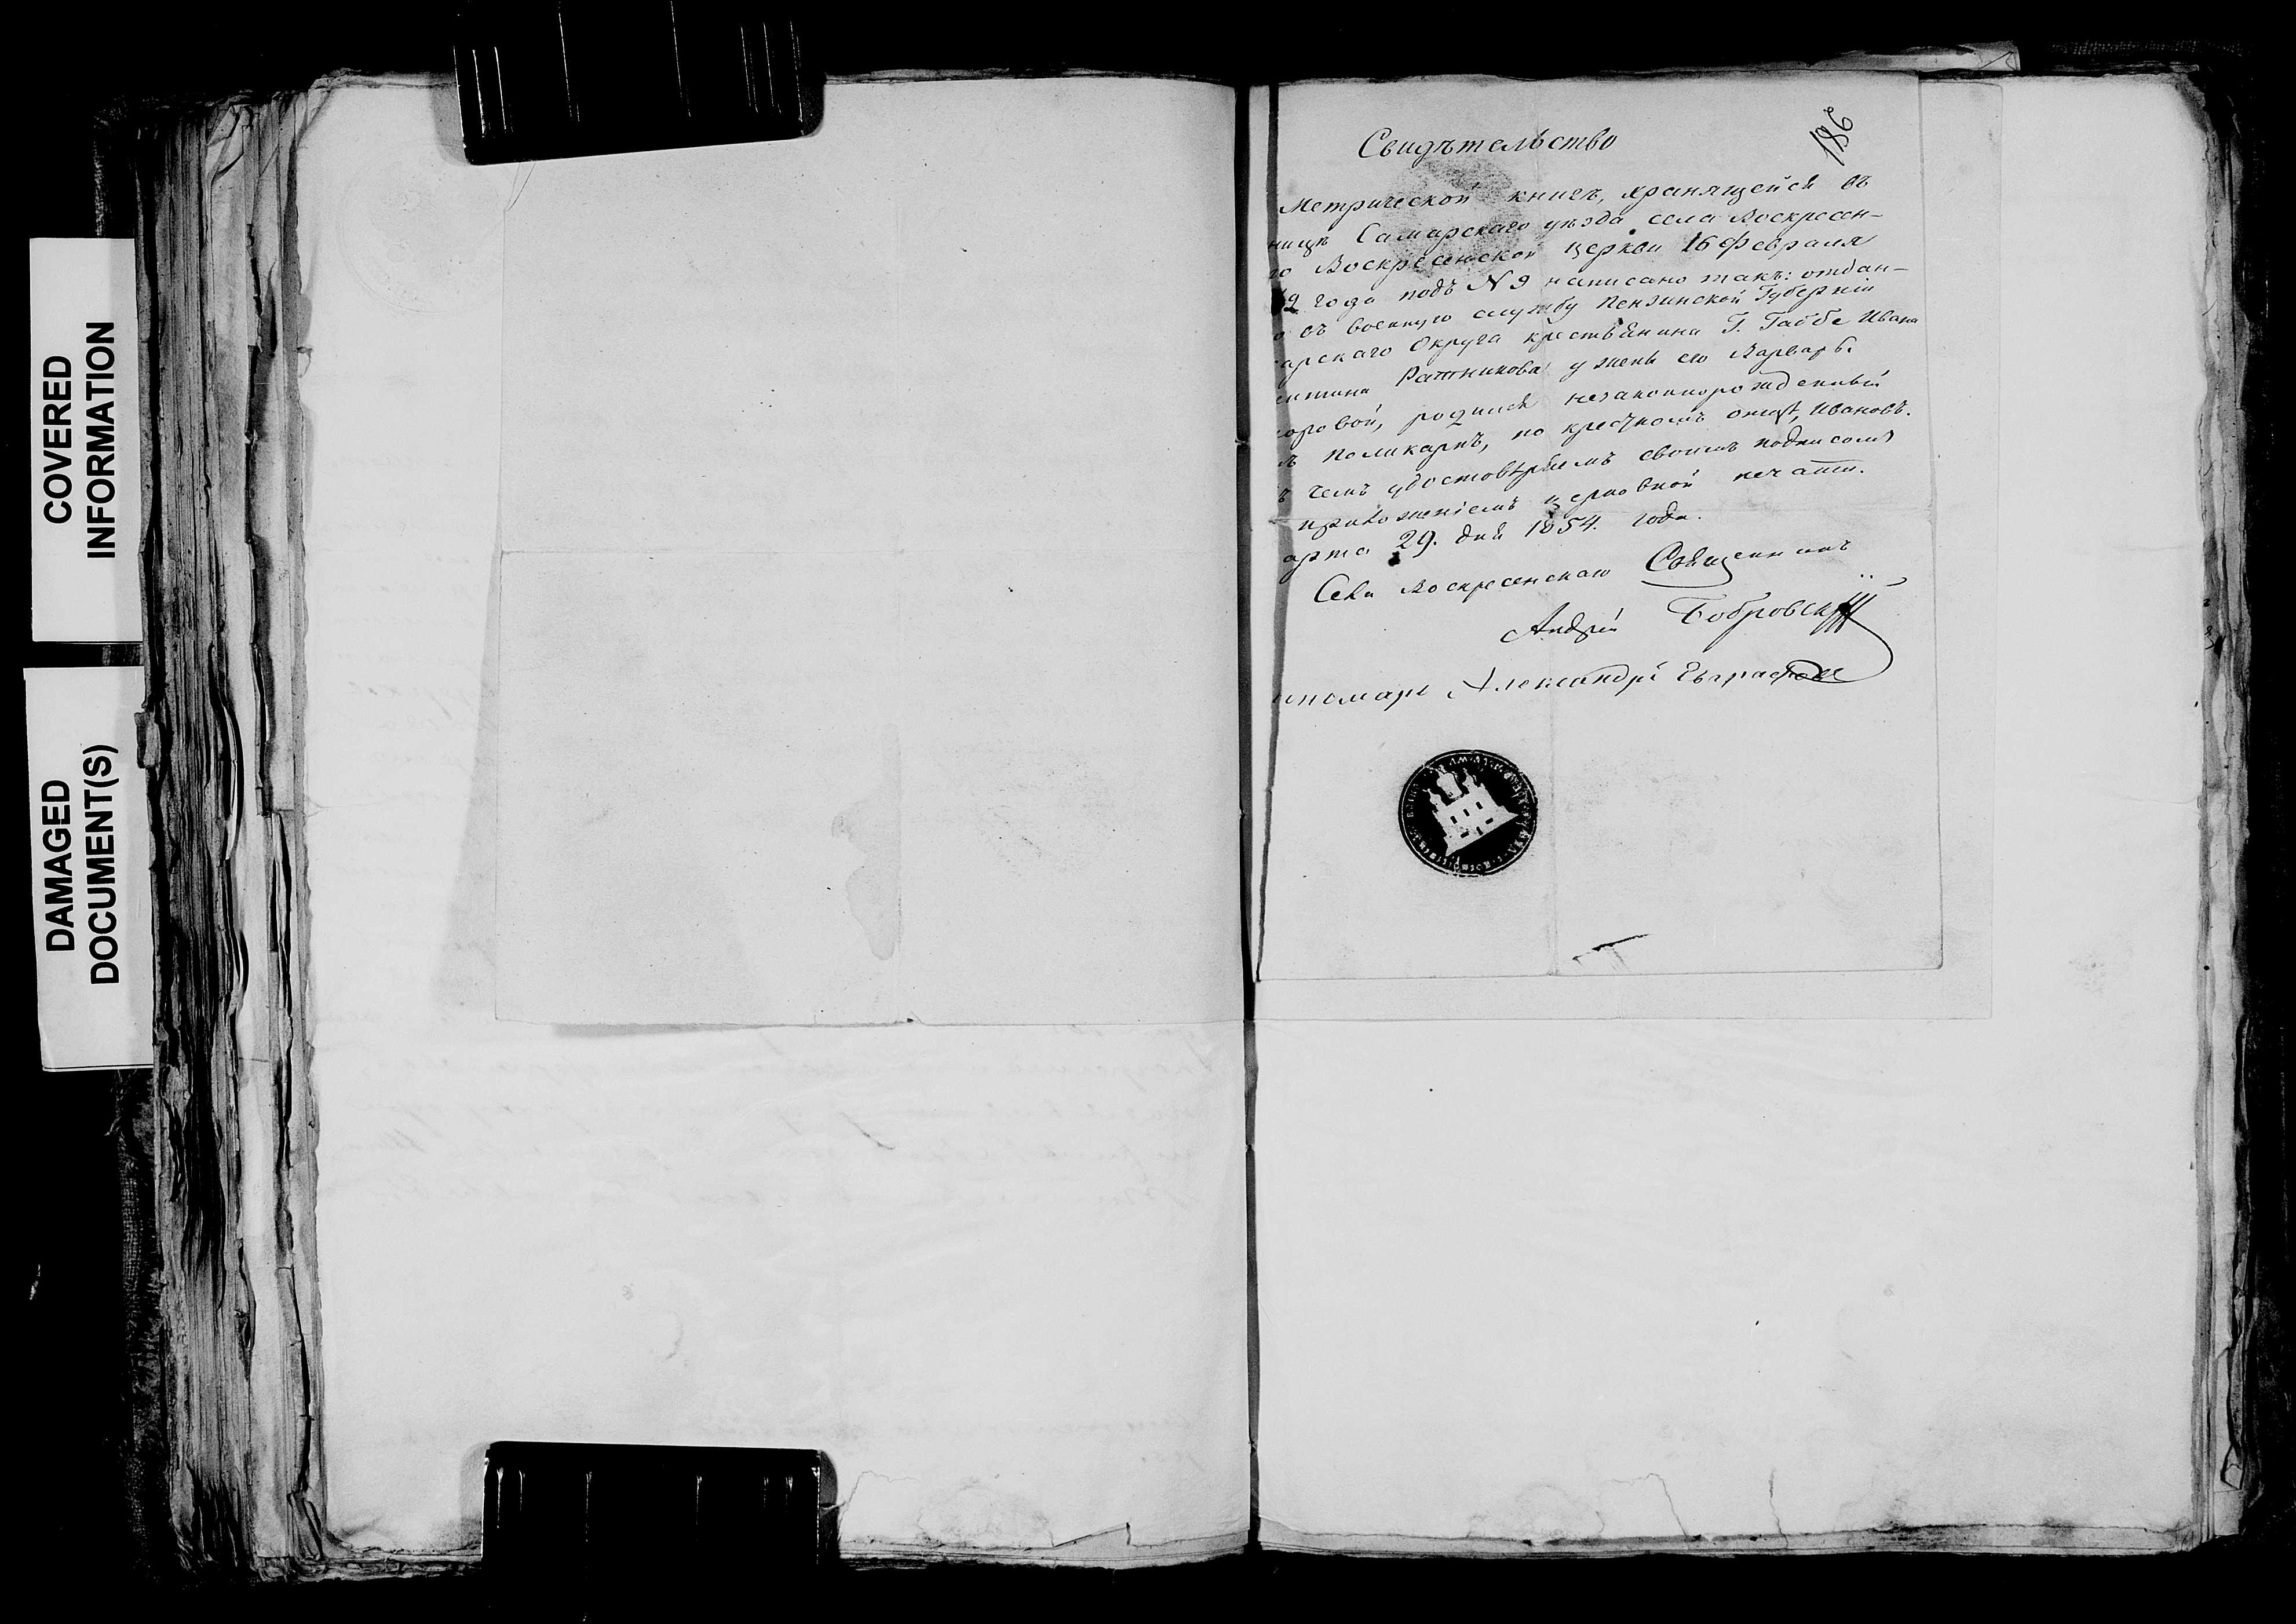 COVERED
INFORMATION
DAMAGED
DOCUMENT(S)
186
Свидѣтельство
Метрической книгѣ, хранящейся въ
ницѣ Самарскаго уѣзда села Воскресен-
го Воскресенской церкви 16 Февраля
2 года подъ N 9 написано такъ: отдан-
о въ военную службу Пензинской Губерніи
арскаго Округа крестьянина Г. Габбе Ивана
ентина Ратникова у жены его Варвары
оровой, родился незаконнорожденный
ъ Поликарпъ, по крестномъ отцѣ, Ивановъ.
ъ чемъ удостовѣряемъ своимъ подписомъ
приложеніемъ церковной печати.
арта 29. дня 1854. года.
Села Воскресенскаго Священникъ
Андрей Бобровскій
ономарь Александръ Евграфовъ